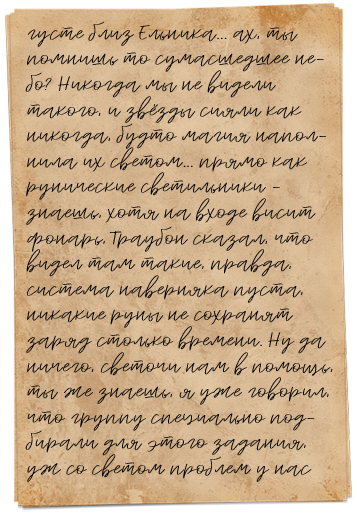 густе близ Ельника... ах, ты
помнишь то сумасшедшее не-
бо? Никогда мы не видели
такого, и звёзды сияли как
никогда, будто магия напол-
нила их светом... прямо как
рунические светильники -
знаешь, хотя на входе висит
фонарь, Траубон сказал, что
видел там такие, правда,
система наверняка пуста,
никакие руны не сохранят
заряд столько времени. Ну да
ничего, светочи нам в помощь,
ты же знаешь, я уже говорил,
что группу специально под-
бирали для этого задания,
уж со светом проблем у нас